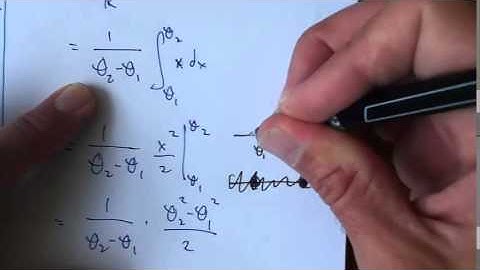 ℝ
= 1/(θ₂-θ₁) ∫_{θ₁}^{θ₂} x dx
= 1/(θ₂-θ₁) x²/2 |_{θ₁}^{θ₂}
θ₁
= 1/(θ₂-θ₁) · (θ₂²-θ₁²)/2